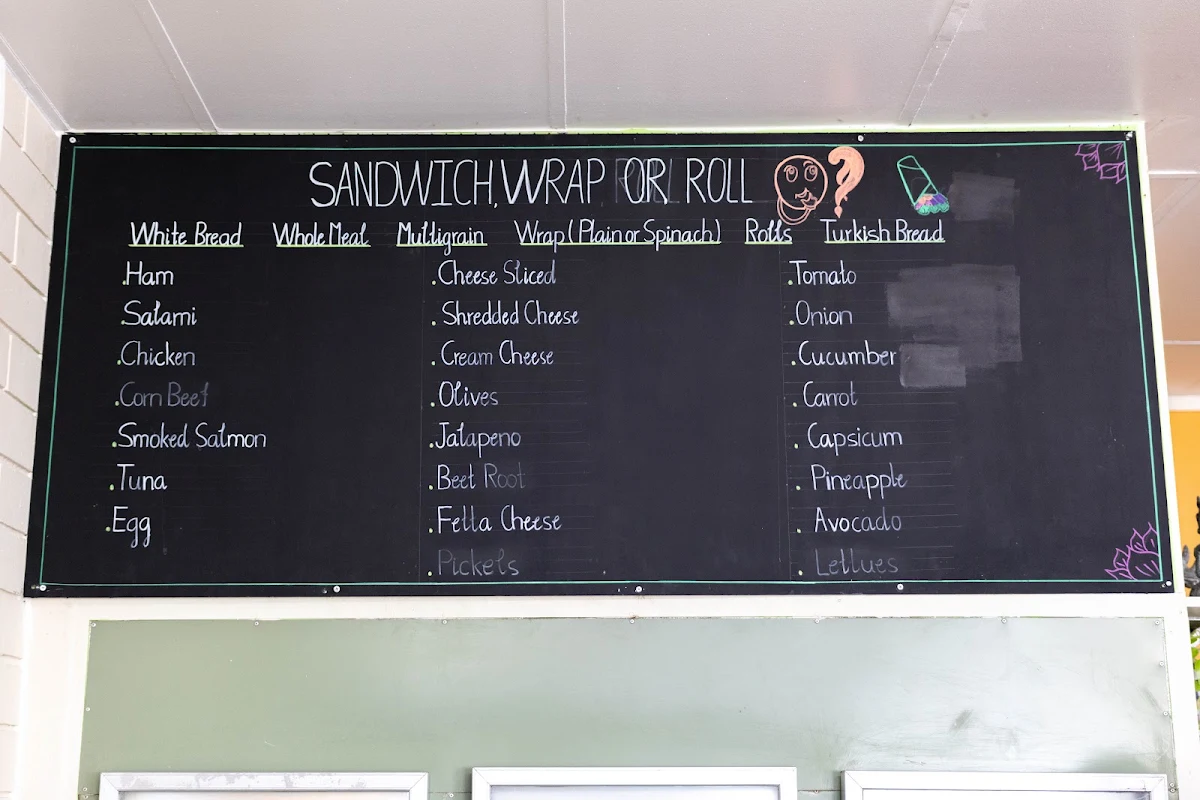 SANDWICH, WRAP OR ROLL ?
White Bread Whole Meal Multigrain Wrap (Plain or Spinach) Rolls Turkish Bread
.Ham
.Salami
.Chicken
.Corn Beef
.Smoked Salmon
.Tuna
.Egg
.Cheese Sliced
.Shredded Cheese
.Cream Cheese
.Olives
.Jalapeno
.Beet Root
.Fetta Cheese
.Pickels
.Tomato
.Onion
.Cucumber
.Carrot
.Capsicum
.Pineapple
.Avocado
.Lettues